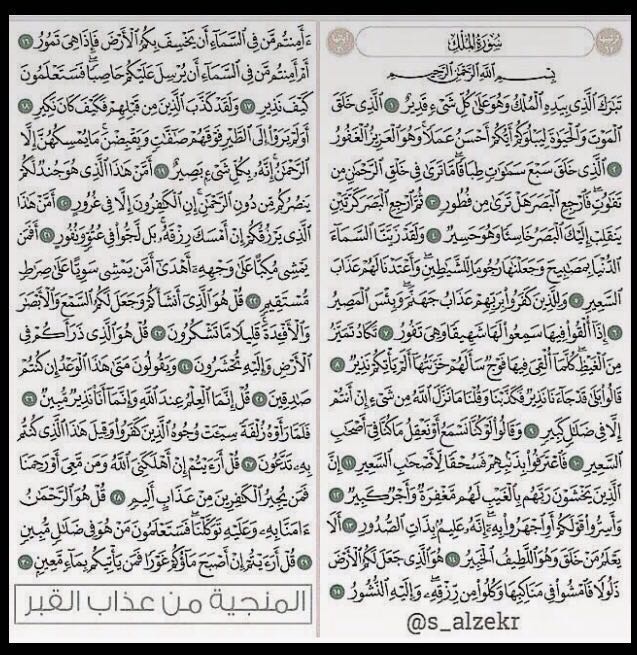 سُورَةُ المُلْكِ
بِسْمِ اللَّهِ الرَّحْمَٰنِ الرَّحِيمِ
تَبَٰرَكَ الَّذِى بِيَدِهِ الْمُلْكُ وَهُوَ عَلَىٰ كُلِّ شَىْءٍ قَدِيرٌ ١ الَّذِى خَلَقَ
الْمَوْتَ وَالْحَيَوٰةَ لِيَبْلُوَكُمْ أَيُّكُمْ أَحْسَنُ عَمَلًا وَهُوَ الْعَزِيزُ الْغَفُورُ
٢ الَّذِى خَلَقَ سَبْعَ سَمَٰوَٰتٍ طِبَاقًا مَّا تَرَىٰ فِى خَلْقِ الرَّحْمَٰنِ مِن
تَفَٰوُتٍ فَارْجِعِ الْبَصَرَ هَلْ تَرَىٰ مِن فُطُورٍ ٣ ثُمَّ ارْجِعِ الْبَصَرَ كَرَّتَيْنِ
يَنقَلِبْ إِلَيْكَ الْبَصَرُ خَاسِئًا وَهُوَ حَسِيرٌ ٤ وَلَقَدْ زَيَّنَّا السَّمَاءَ
الدُّنْيَا بِمَصَٰبِيحَ وَجَعَلْنَٰهَا رُجُومًا لِّلشَّيَٰطِينِ وَأَعْتَدْنَا لَهُمْ عَذَابَ
السَّعِيرِ ٥ وَلِلَّذِينَ كَفَرُوا بِرَبِّهِمْ عَذَابُ جَهَنَّمَ وَبِئْسَ الْمَصِيرُ
٦ إِذَا أُلْقُوا فِيهَا سَمِعُوا لَهَا شَهِيقًا وَهِىَ تَفُورُ ٧ تَكَادُ تَمَيَّزُ
مِنَ الْغَيْظِ كُلَّمَا أُلْقِىَ فِيهَا فَوْجٌ سَأَلَهُمْ خَزَنَتُهَا أَلَمْ يَأْتِكُمْ نَذِيرٌ ٨
قَالُوا بَلَىٰ قَدْ جَاءَنَا نَذِيرٌ فَكَذَّبْنَا وَقُلْنَا مَا نَزَّلَ اللَّهُ مِن شَىْءٍ إِنْ أَنتُمْ
إِلَّا فِى ضَلَٰلٍ كَبِيرٍ ٩ وَقَالُوا لَوْ كُنَّا نَسْمَعُ أَوْ نَعْقِلُ مَا كُنَّا فِى أَصْحَٰبِ
السَّعِيرِ ١٠ فَاعْتَرَفُوا بِذَنبِهِمْ فَسُحْقًا لِّأَصْحَٰبِ السَّعِيرِ ١١ إِنَّ
الَّذِينَ يَخْشَوْنَ رَبَّهُم بِالْغَيْبِ لَهُم مَّغْفِرَةٌ وَأَجْرٌ كَبِيرٌ ١٢
وَأَسِرُّوا قَوْلَكُمْ أَوِ اجْهَرُوا بِهِ إِنَّهُ عَلِيمٌ بِذَاتِ الصُّدُورِ ١٣ أَلَا
يَعْلَمُ مَنْ خَلَقَ وَهُوَ اللَّطِيفُ الْخَبِيرُ ١٤ هُوَ الَّذِى جَعَلَ لَكُمُ الْأَرْضَ
ذَلُولًا فَامْشُوا فِى مَنَاكِبِهَا وَكُلُوا مِن رِّزْقِهِ وَإِلَيْهِ النُّشُورُ ١٥
@s_alzekr
ءَأَمِنتُم مَّن فِى السَّمَاءِ أَن يَخْسِفَ بِكُمُ الْأَرْضَ فَإِذَا هِىَ تَمُورُ ١٦
أَمْ أَمِنتُم مَّن فِى السَّمَاءِ أَن يُرْسِلَ عَلَيْكُمْ حَاصِبًا فَسَتَعْلَمُونَ
كَيْفَ نَذِيرِ ١٧ وَلَقَدْ كَذَّبَ الَّذِينَ مِن قَبْلِهِمْ فَكَيْفَ كَانَ نَكِيرِ ١٨
أَوَلَمْ يَرَوْا إِلَى الطَّيْرِ فَوْقَهُمْ صَٰفَّٰتٍ وَيَقْبِضْنَ مَا يُمْسِكُهُنَّ إِلَّا
الرَّحْمَٰنُ إِنَّهُ بِكُلِّ شَىْءٍ بَصِيرٌ ١٩ أَمَّنْ هَٰذَا الَّذِى هُوَ جُندٌ لَّكُمْ
يَنصُرُكُم مِّن دُونِ الرَّحْمَٰنِ إِنِ الْكَٰفِرُونَ إِلَّا فِى غُرُورٍ ٢٠ أَمَّنْ هَٰذَا
الَّذِى يَرْزُقُكُمْ إِنْ أَمْسَكَ رِزْقَهُ بَل لَّجُّوا فِى عُتُوٍّ وَنُفُورٍ ٢١ أَفَمَن
يَمْشِى مُكِبًّا عَلَىٰ وَجْهِهِ أَهْدَىٰ أَمَّن يَمْشِى سَوِيًّا عَلَىٰ صِرَٰطٍ
مُّسْتَقِيمٍ ٢٢ قُلْ هُوَ الَّذِى أَنشَأَكُمْ وَجَعَلَ لَكُمُ السَّمْعَ وَالْأَبْصَٰرَ
وَالْأَفْـِٔدَةَ قَلِيلًا مَّا تَشْكُرُونَ ٢٣ قُلْ هُوَ الَّذِى ذَرَأَكُمْ فِى
الْأَرْضِ وَإِلَيْهِ تُحْشَرُونَ ٢٤ وَيَقُولُونَ مَتَىٰ هَٰذَا الْوَعْدُ إِن كُنتُمْ
صَٰدِقِينَ ٢٥ قُلْ إِنَّمَا الْعِلْمُ عِندَ اللَّهِ وَإِنَّمَا أَنَا نَذِيرٌ مُّبِينٌ ٢٦
فَلَمَّا رَأَوْهُ زُلْفَةً سِيـَٔتْ وُجُوهُ الَّذِينَ كَفَرُوا وَقِيلَ هَٰذَا الَّذِى كُنتُم
بِهِ تَدَّعُونَ ٢٧ قُلْ أَرَءَيْتُمْ إِنْ أَهْلَكَنِىَ اللَّهُ وَمَن مَّعِىَ أَوْ رَحِمَنَا
فَمَن يُجِيرُ الْكَٰفِرِينَ مِنْ عَذَابٍ أَلِيمٍ ٢٨ قُلْ هُوَ الرَّحْمَٰنُ
ءَامَنَّا بِهِ وَعَلَيْهِ تَوَكَّلْنَا فَسَتَعْلَمُونَ مَنْ هُوَ فِى ضَلَٰلٍ مُّبِينٍ
٢٩ قُلْ أَرَءَيْتُمْ إِنْ أَصْبَحَ مَاؤُكُمْ غَوْرًا فَمَن يَأْتِيكُم بِمَاءٍ مَّعِينٍ ٣٠
المنجية من عذاب القبر